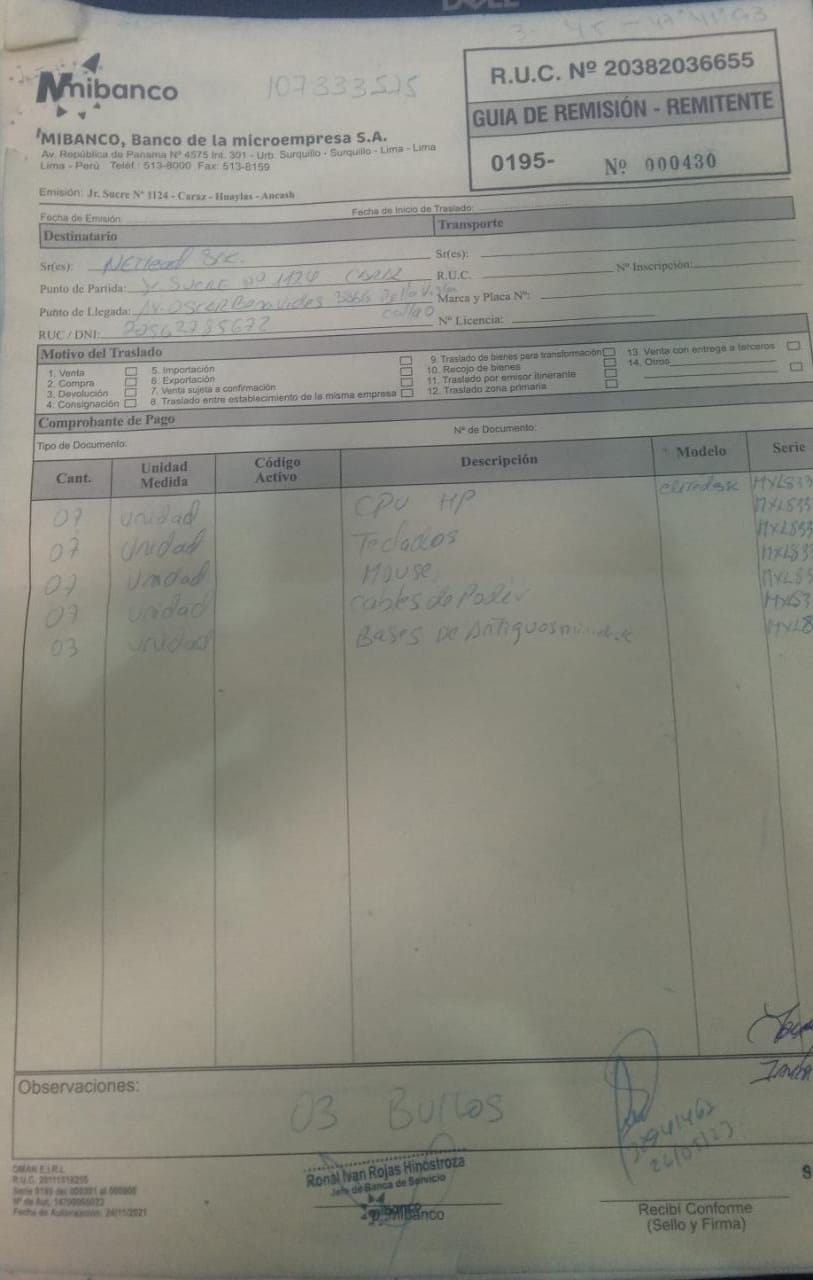 DELL
mibanco
107333525
R.U.C. Nº 20382036655
GUIA DE REMISIÓN - REMITENTE
0195- Nº 000430
MIBANCO, Banco de la microempresa S.A.
Av. República de Panama Nº 4575 Int. 301 - Urb. Surquillo - Surquillo - Lima - Lima
Lima - Perú Teléf.: 513-8000 Fax: 513-8159
Emisión: Jr. Sucre Nº 1124 - Caraz - Huaylas - Ancash
Fecha de Emisión:
Fecha de Inicio de Traslado:
Destinatario
Transporte
Sr(es):
Sr(es):
Punto de Partida: Jr Sucre Nº 1124
R.U.C.
Nº Inscripción:
Punto de Llegada: Av. Oscar Benavides 3866 Bella Vista
Callao
Marca y Placa Nº:
RUC / DNI:
Nº Licencia:
Motivo del Traslado
1. Venta
2. Compra
3. Devolución
4. Consignación
5. Importación
6. Exportación
7. Venta sujeta a confirmación
8. Traslado entre establecimiento de la misma empresa
9. Traslado de bienes para transformación
10. Recojo de bienes
11. Traslado por emisor itinerante
12. Traslado zona primaria
13. Venta con entrega a terceros
14. Otros
Comprobante de Pago
Tipo de Documento:
Nº de Documento:
Cant. Unidad Medida Código Activo Descripción Modelo Serie
07 unidad CPU HP elitedesk MXL833
07 unidad Teclados
07 unidad Mouse
07 unidad cables de Poder
03 unidad Bases De
Observaciones:
03 Bultos
26/05/23
OMAN E.I.R.L
Fecha de Autorización: 24/11/2021
Ronal Ivan Rojas Hinostroza
Jefe de Banca de Servicio
mibanco
p. Mibanco
Recibí Conforme
(Sello y Firma)